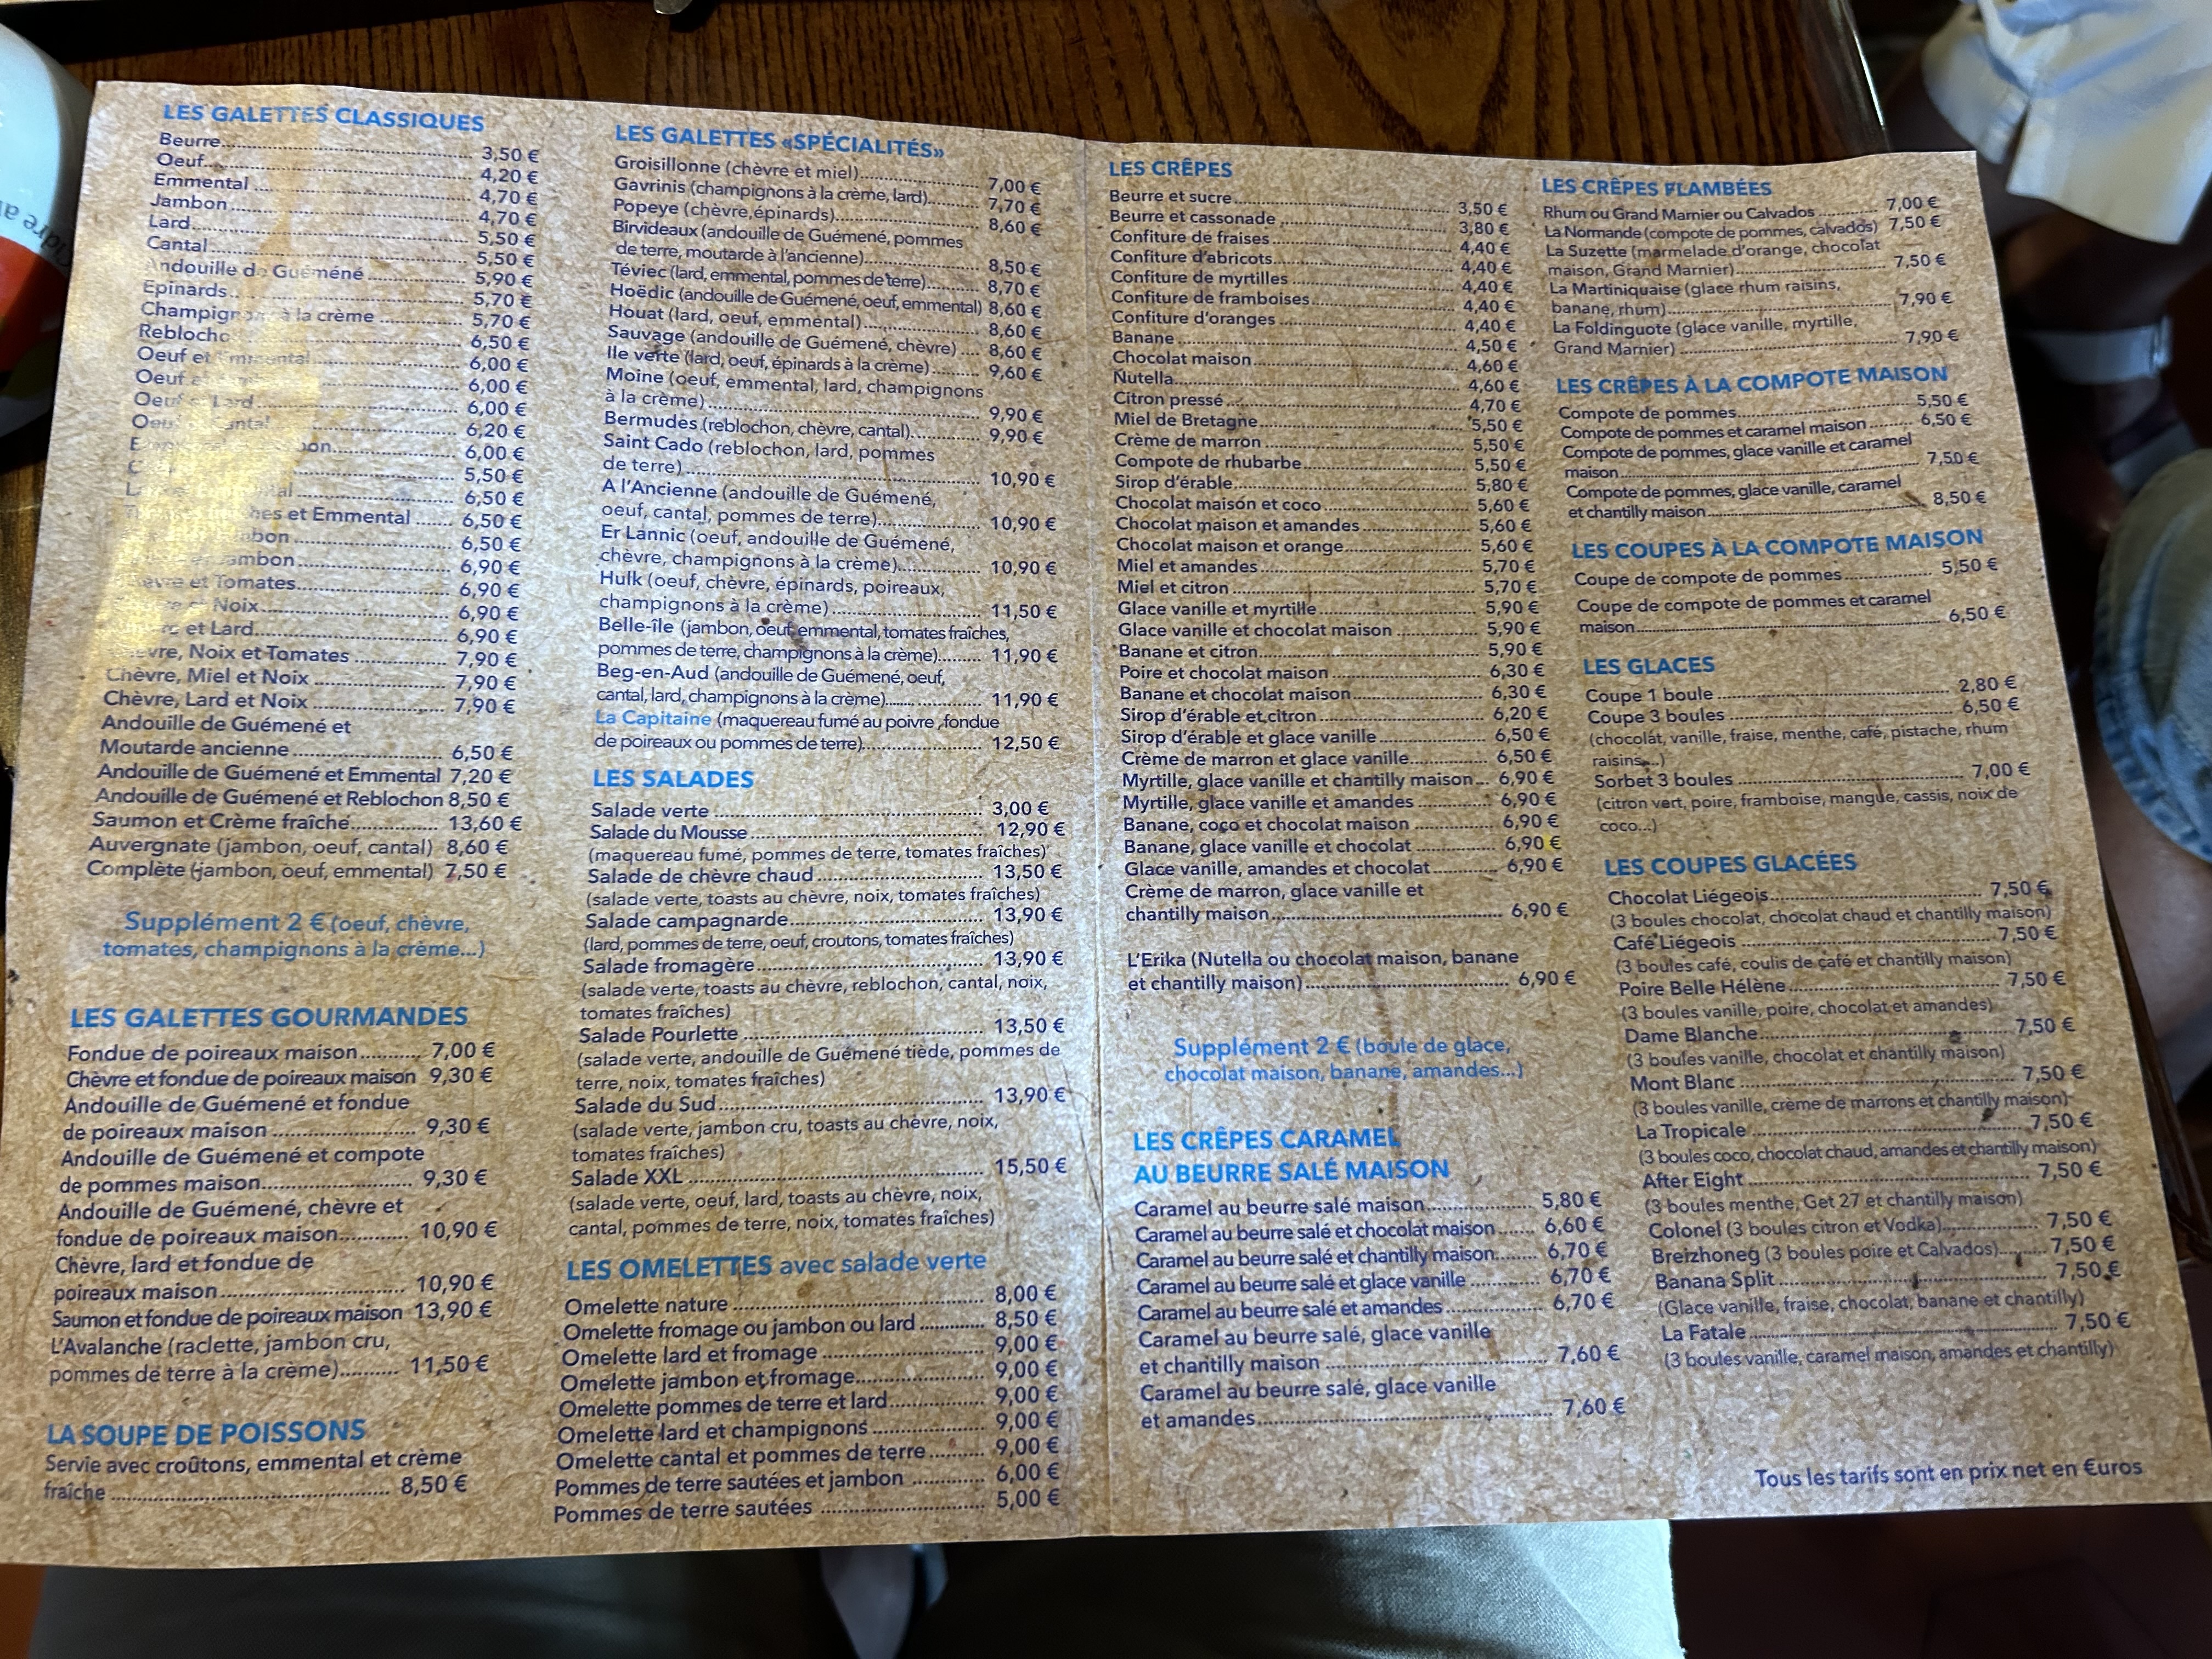 LES GALETTES CLASSIQUES
Beurre 3,50 €
Oeuf 4,20 €
Emmental 4,70 €
Jambon 4,70 €
Lard 5,50 €
Cantal 5,50 €
Andouille de Guémené 5,90 €
Epinards 5,70 €
Champignons à la crème 5,70 €
Reblocho 6,50 €
Oeuf et Emmental 6,00 €
Oeuf 6,00 €
Oeuf et Lard 6,00 €
Oeuf Cantal 6,20 €
6,00 €
5,50 €
6,50 €
et Emmental 6,50 €
6,50 €
Jambon 6,90 €
et Tomates 6,90 €
Noix 6,90 €
et Lard 6,90 €
Chèvre, Noix et Tomates 7,90 €
Chèvre, Miel et Noix 7,90 €
Chèvre, Lard et Noix 7,90 €
Andouille de Guémené et
Moutarde ancienne 6,50 €
Andouille de Guémené et Emmental 7,20 €
Andouille de Guémené et Reblochon 8,50 €
Saumon et Crème fraîche 13,60 €
Auvergnate (jambon, oeuf, cantal) 8,60 €
Complète (jambon, oeuf, emmental) 7,50 €
Supplément 2 € (oeuf, chèvre,
tomates, champignons à la crème...)
LES GALETTES GOURMANDES
Fondue de poireaux maison 7,00 €
Chèvre et fondue de poireaux maison 9,30 €
Andouille de Guémené et fondue
de poireaux maison 9,30 €
Andouille de Guémené et compote
de pommes maison 9,30 €
Andouille de Guémené, chèvre et
fondue de poireaux maison 10,90 €
Chèvre, lard et fondue de
poireaux maison 10,90 €
Saumon et fondue de poireaux maison 13,90 €
L'Avalanche (raclette, jambon cru,
pommes de terre à la crème) 11,50 €
LA SOUPE DE POISSONS
Servie avec croûtons, emmental et crème
fraîche 8,50 €
LES GALETTES «SPÉCIALITÉS»
Groisillonne (chèvre et miel) 7,00 €
Gavrinis (champignons à la crème, lard) 7,70 €
Popeye (chèvre,épinards) 8,60 €
Birvideaux (andouille de Guémené, pommes
de terre, moutarde à l'ancienne) 8,50 €
Téviec (lard, emmental, pommes de terre) 8,70 €
Hoëdic (andouille de Guémené, oeuf, emmental) 8,60 €
Houat (lard, oeuf, emmental) 8,60 €
Sauvage (andouille de Guémené, chèvre) 8,60 €
Ile verte (lard, oeuf, épinards à la crème) 9,60 €
Moine (oeuf, emmental, lard, champignons
à la crème) 9,90 €
Bermudes (reblochon, chèvre, cantal) 9,90 €
Saint Cado (reblochon, lard, pommes
de terre) 10,90 €
A l'Ancienne (andouille de Guémené,
oeuf, cantal, pommes de terre) 10,90 €
Er Lannic (oeuf, andouille de Guémené,
chèvre, champignons à la crème) 10,90 €
Hulk (oeuf, chèvre, épinards, poireaux,
champignons à la crème) 11,50 €
Belle-île (jambon, oeuf, emmental, tomates fraîches,
pommes de terre, champignons à la crème) 11,90 €
Beg-en-Aud (andouille de Guémené, oeuf,
cantal, lard, champignons à la crème) 11,90 €
La Capitaine (maquereau fumé au poivre ,fondue
de poireaux ou pommes de terre) 12,50 €
LES SALADES
Salade verte 3,00 €
Salade du Mousse 12,90 €
(maquereau fumé, pommes de terre, tomates fraîches)
Salade de chèvre chaud 13,50 €
(salade verte, toasts au chèvre, noix, tomates fraîches)
Salade campagnarde 13,90 €
(lard, pommes de terre, oeuf, croutons, tomates fraîches)
Salade fromagère 13,90 €
(salade verte, toasts au chèvre, reblochon, cantal, noix,
tomates fraîches)
Salade Pourlette 13,50 €
(salade verte, andouille de Guémené tiède, pommes de
terre, noix, tomates fraîches)
Salade du Sud 13,90 €
(salade verte, jambon cru, toasts au chèvre, noix,
tomates fraîches)
Salade XXL 15,50 €
(salade verte, oeuf, lard, toasts au chèvre, noix,
cantal, pommes de terre, noix, tomates fraîches)
LES OMELETTES avec salade verte
Omelette nature 8,00 €
Omelette fromage ou jambon ou lard 8,50 €
Omelette lard et fromage 9,00 €
Omelette jambon et fromage 9,00 €
Omelette pommes de terre et lard 9,00 €
Omelette lard et champignons 9,00 €
Omelette cantal et pommes de terre 9,00 €
Pommes de terre sautées et jambon 6,00 €
Pommes de terre sautées 5,00 €
LES CRÊPES
Beurre et sucre 3,50 €
Beurre et cassonade 3,80 €
Confiture de fraises 4,40 €
Confiture d'abricots 4,40 €
Confiture de myrtilles 4,40 €
Confiture de framboises 4,40 €
Confiture d'oranges 4,40 €
Banane 4,50 €
Chocolat maison 4,60 €
Nutella 4,60 €
Citron pressé 4,70 €
Miel de Bretagne 5,50 €
Crème de marron 5,50 €
Compote de rhubarbe 5,50 €
Sirop d'érable 5,80 €
Chocolat maison et coco 5,60 €
Chocolat maison et amandes 5,60 €
Chocolat maison et orange 5,60 €
Miel et amandes 5,70 €
Miel et citron 5,70 €
Glace vanille et myrtille 5,90 €
Glace vanille et chocolat maison 5,90 €
Banane et citron 5,90 €
Poire et chocolat maison 6,30 €
Banane et chocolat maison 6,30 €
Sirop d'érable et citron 6,20 €
Sirop d'érable et glace vanille 6,50 €
Crème de marron et glace vanille 6,50 €
Myrtille, glace vanille et chantilly maison 6,90 €
Myrtille, glace vanille et amandes 6,90 €
Banane, coco et chocolat maison 6,90 €
Banane, glace vanille et chocolat 6,90 €
Glace vanille, amandes et chocolat 6,90 €
Crème de marron, glace vanille et
chantilly maison 6,90 €
L'Erika (Nutella ou chocolat maison, banane
et chantilly maison) 6,90 €
Supplément 2 € (boule de glace,
chocolat maison, banane, amandes...)
LES CRÊPES CARAMEL
AU BEURRE SALÉ MAISON
Caramel au beurre salé maison 5,80 €
Caramel au beurre salé et chocolat maison 6,60 €
Caramel au beurre salé et chantilly maison 6,70 €
Caramel au beurre salé et glace vanille 6,70 €
Caramel au beurre salé et amandes 6,70 €
Caramel au beurre salé, glace vanille
et chantilly maison 7,60 €
Caramel au beurre salé, glace vanille
et amandes 7,60 €
LES CRÊPES FLAMBÉES
Rhum ou Grand Marnier ou Calvados 7,00 €
La Normande (compote de pommes, calvados) 7,50 €
La Suzette (marmelade d'orange, chocolat
maison, Grand Marnier) 7,50 €
La Martiniquaise (glace rhum raisins,
banane, rhum) 7,90 €
La Foldinguote (glace vanille, myrtille,
Grand Marnier) 7,90 €
LES CRÊPES À LA COMPOTE MAISON
Compote de pommes 5,50 €
Compote de pommes et caramel maison 6,50 €
Compote de pommes, glace vanille et caramel
maison 7,50 €
Compote de pommes, glace vanille, caramel
et chantilly maison 8,50 €
LES COUPES À LA COMPOTE MAISON
Coupe de compote de pommes 5,50 €
Coupe de compote de pommes et caramel
maison 6,50 €
LES GLACES
Coupe 1 boule 2,80 €
Coupe 3 boules 6,50 €
(chocolat, vanille, fraise, menthe, café, pistache, rhum
raisins...)
Sorbet 3 boules 7,00 €
(citron vert, poire, framboise, mangue, cassis, noix de
coco...)
LES COUPES GLACÉES
Chocolat Liégeois 7,50 €
(3 boules chocolat, chocolat chaud et chantilly maison)
Café Liégeois 7,50 €
(3 boules café, coulis de café et chantilly maison)
Poire Belle Hélène 7,50 €
(3 boules vanille, poire, chocolat et amandes)
Dame Blanche 7,50 €
(3 boules vanille, chocolat et chantilly maison)
Mont Blanc 7,50 €
(3 boules vanille, crème de marrons et chantilly maison)
La Tropicale 7,50 €
(3 boules coco, chocolat chaud, amandes et chantilly maison)
After Eight 7,50 €
(3 boules menthe, Get 27 et chantilly maison)
Colonel (3 boules citron et Vodka) 7,50 €
Breizhoneg (3 boules poire et Calvados) 7,50 €
Banana Split 7,50 €
(Glace vanille, fraise, chocolat, banane et chantilly)
La Fatale 7,50 €
(3 boules vanille, caramel maison, amandes et chantilly)
Tous les tarifs sont en prix net en €uros